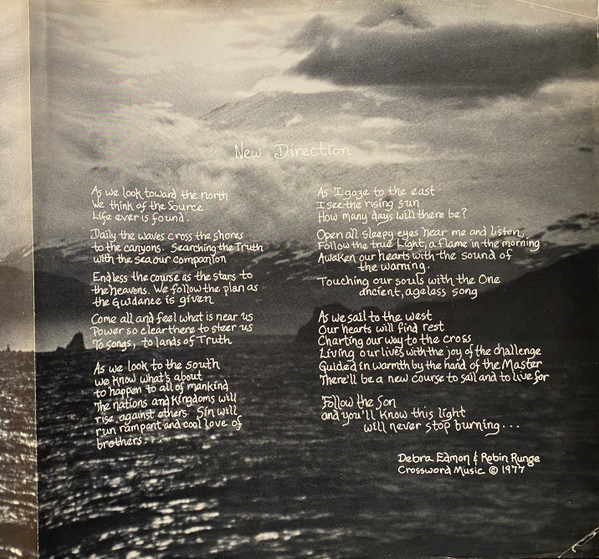 New Direction
As we look toward the north
We think of the Source
Life ever is found.
Daily the waves cross the shores
to the canyons. Searching the Truth
with the sea our companion
Endless the course as the stars to
the heavens. We follow the plan as
the Guidance is given
Come all and feel what is near us
Power so clear there to steer us
To songs, to lands of Truth
As we look to the south
we know what's about
to happen to all of mankind
The nations and kingdoms will
rise against others. Sin will
run rampant and cool love of
brothers.
As I gaze to the east
I see the rising sun
How many days will there be?
Open all sleepy eyes hear me and listen,
Follow the true Light, a flame in the morning
Awaken our hearts with the sound of
the warning.
Touching our souls with the One
ancient, ageless song
As we sail to the west
Our hearts will find rest
Charting our way to the cross
Living our lives with the joy of the challenge
Guided in warmth by the hand of the Master
There'll be a new course to sail and to live for
Follow the Son
and you'll know this light
will never stop burning...
Debra Edmon & Robin Runge
Crossword Music © 1977